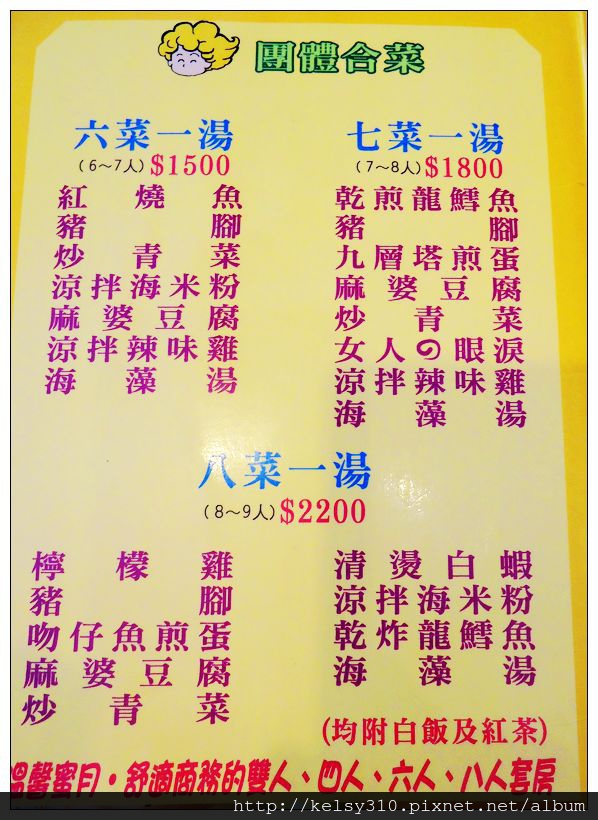 團體合菜
六菜一湯
(6～7人) $1500
紅燒魚
豬腳
炒青菜
涼拌海米粉
麻婆豆腐
涼拌辣味雞
海藻湯
七菜一湯
(7～8人) $1800
乾煎龍鱈魚
豬腳
九層塔煎蛋
麻婆豆腐
炒青菜
女人の眼淚
涼拌辣味雞
海藻湯
八菜一湯
(8～9人) $2200
檸檬雞
豬腳
吻仔魚煎蛋
麻婆豆腐
炒青菜
清燙白蝦
涼拌海米粉
乾炸龍鱈魚
海藻湯
(均附白飯及紅茶)
溫馨蜜月・舒適商務的雙人、四人、六人、八人套房
http://kelsy310.pixnet.net/album